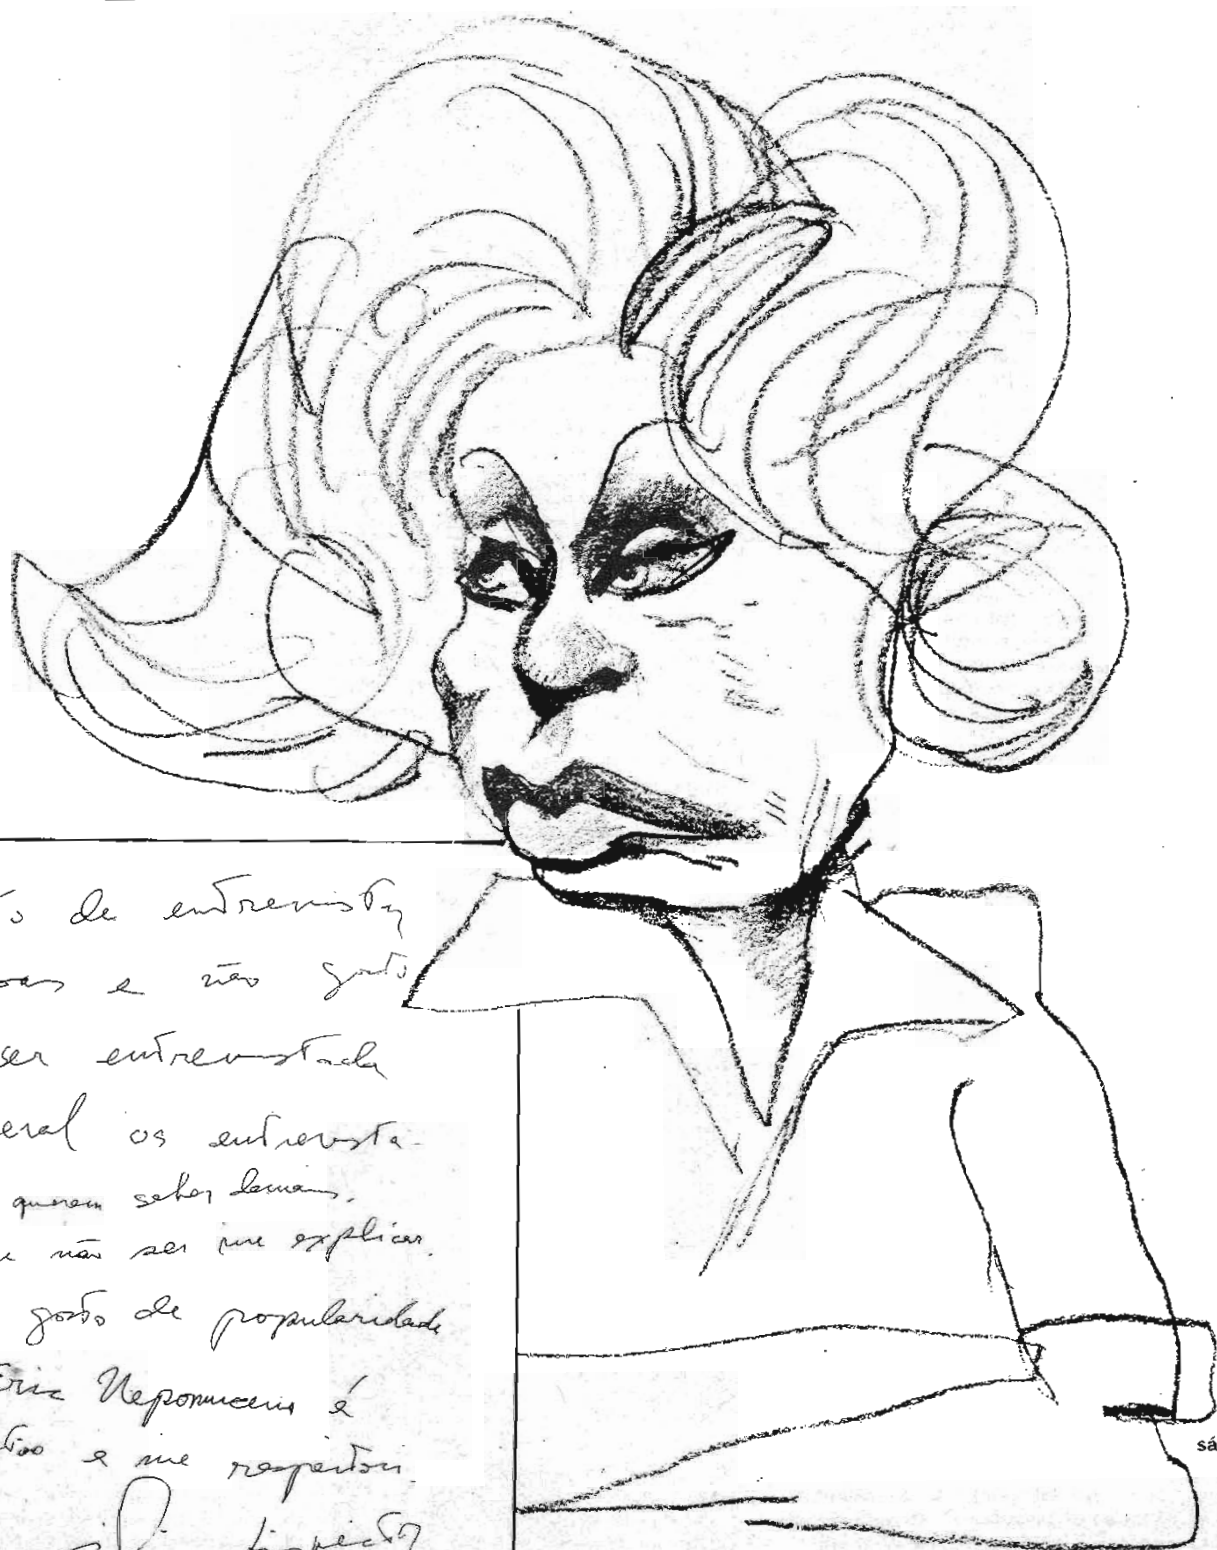 de entrevistas
e não gosto
ser entrevistada
eral os entrevista-
querem saber demais.
não sei me explicar.
gosto de popularidade
Eric Nepomuceno é
e me respeitou.
sá